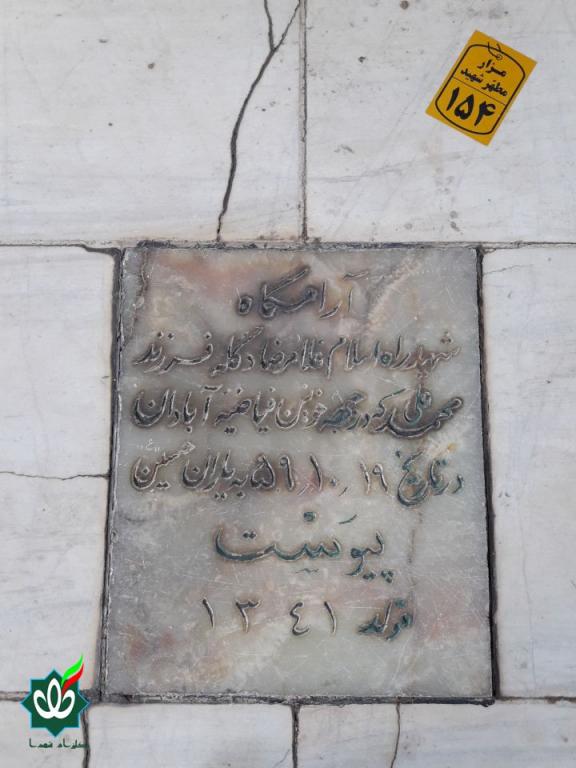 مزار
مطهر شهید
۱۵۴
آرامگاه
شهید راه اسلام غلامرضا دکله فرزند
محمد قلی که در جبهه خونین فیاضیه آبادان
در تاریخ ۵۹٫۱۰٫۱۹ به یاران حسین "ع"
پیوست
تولد ۱۳۴۱
گلزار شهدا